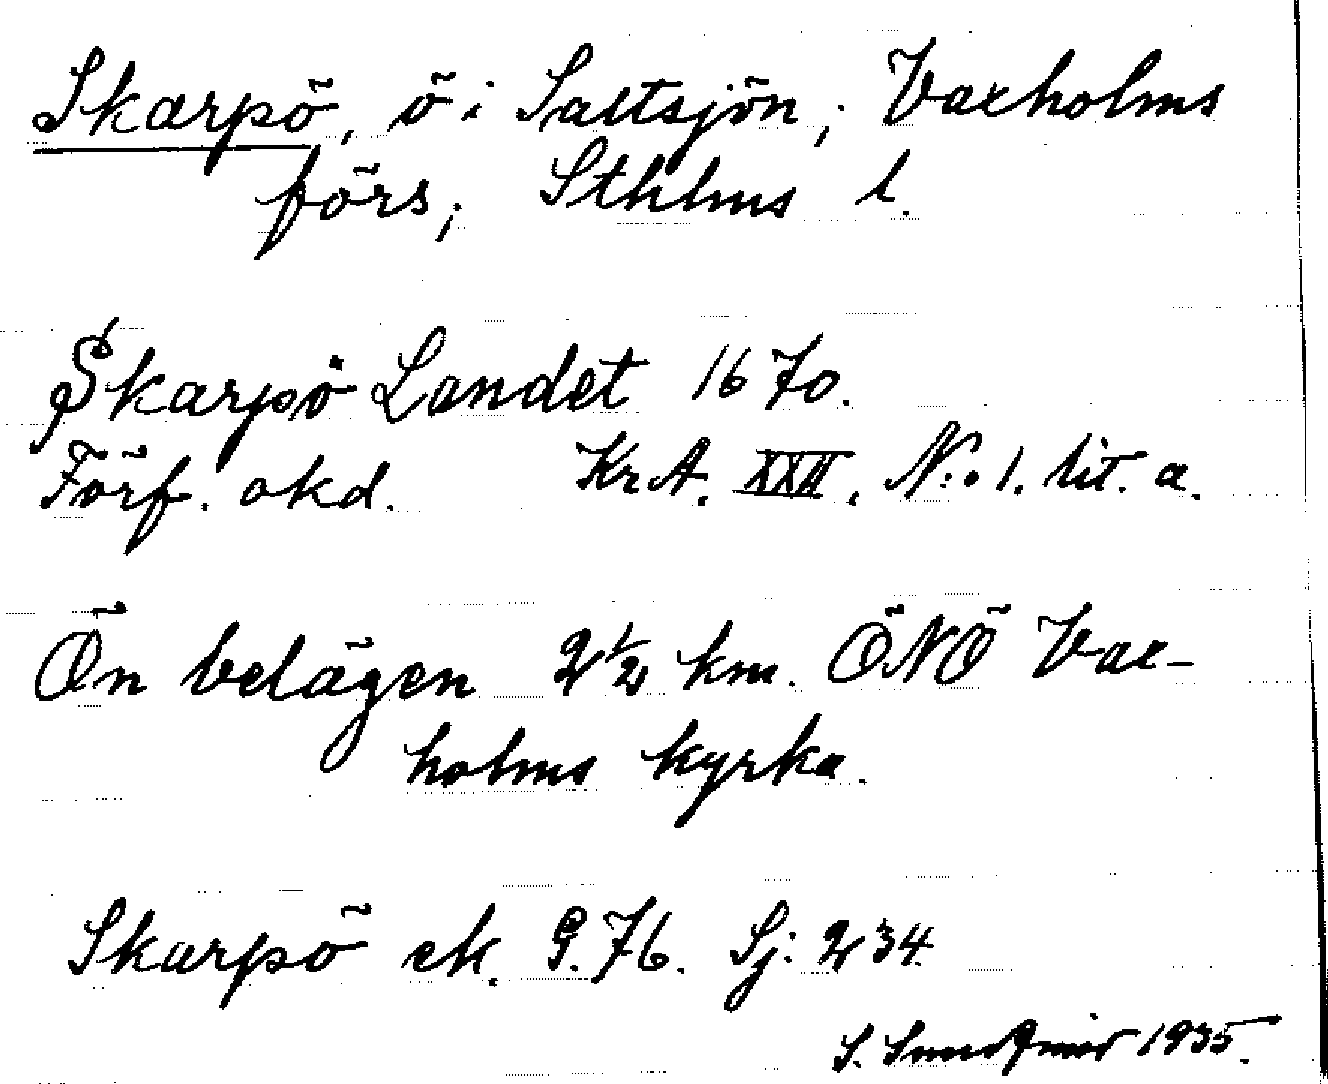 Skarpö, ö i Saltsjön, Vaxholms
förs; Sthlms l.
Skarpö Landet 1670.
Förf. okd. KrA. XXII. N:o 1. lit. a.
Ön belägen 2 1/2 km. ÖNÖ Vax-
holms kyrka.
Skarpö ek. G. 76. Sj: 234
S. 1935.